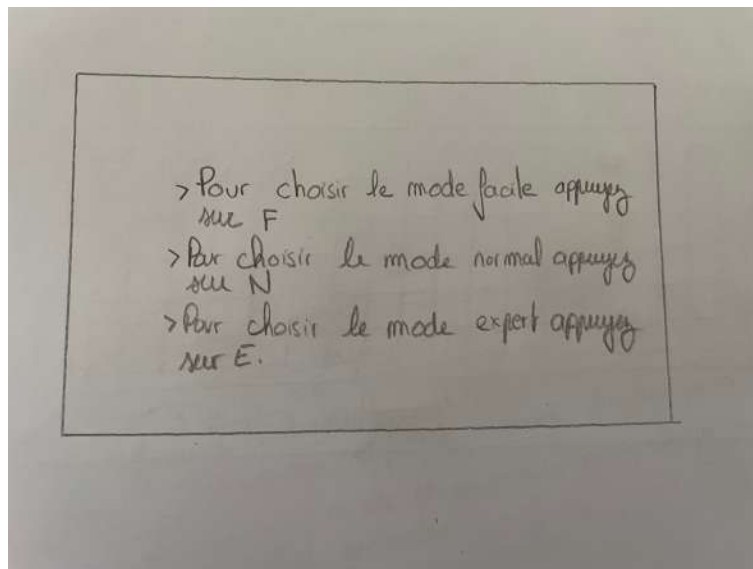 > Pour choisir le mode facile appuyez
sur F
> Pour choisir le mode normal appuyez
sur N
> Pour choisir le mode expert appuyez
sur E.